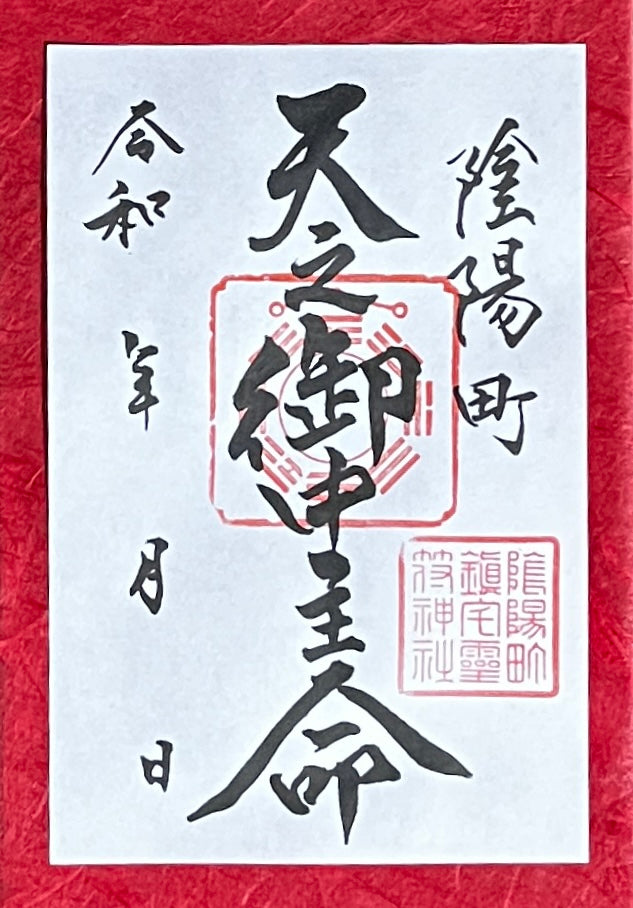 陰陽町
天之御中主命
令和 年 月 日
陰陽町
鎮宅霊
符神社